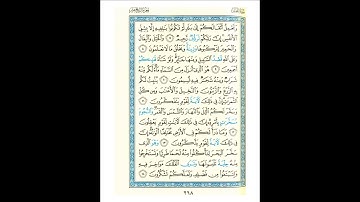 وَتَحْمِلُ أَثْقَالَكُمْ إِلَىٰ بَلَدٍ لَّمْ تَكُونُوا۟ بَٰلِغِيهِ إِلَّا بِشِقِّ
ٱلْأَنفُسِ إِنَّ رَبَّكُمْ لَرَءُوفٌ رَّحِيمٌ ٧ وَٱلْخَيْلَ وَٱلْبِغَالَ
وَٱلْحَمِيرَ لِتَرْكَبُوهَا وَزِينَةً وَيَخْلُقُ مَا لَا تَعْلَمُونَ ٨
وَعَلَى ٱللَّهِ قَصْدُ ٱلسَّبِيلِ وَمِنْهَا جَآئِرٌ وَلَوْ شَآءَ لَهَدَىٰكُمْ
أَجْمَعِينَ ٩ هُوَ ٱلَّذِىٓ أَنزَلَ مِنَ ٱلسَّمَآءِ مَآءً لَّكُم مِّنْهُ
شَرَابٌ وَمِنْهُ شَجَرٌ فِيهِ تُسِيمُونَ ١٠ يُنۢبِتُ لَكُم
بِهِ ٱلزَّرْعَ وَٱلزَّيْتُونَ وَٱلنَّخِيلَ وَٱلْأَعْنَٰبَ وَمِن كُلِّ
ٱلثَّمَرَٰتِ إِنَّ فِى ذَٰلِكَ لَءَايَةً لِّقَوْمٍ يَتَفَكَّرُونَ ١١
وَسَخَّرَ لَكُمُ ٱلَّيْلَ وَٱلنَّهَارَ وَٱلشَّمْسَ وَٱلْقَمَرَ وَٱلنُّجُومُ
مُسَخَّرَٰتٌۢ بِأَمْرِهِۦٓ إِنَّ فِى ذَٰلِكَ لَءَايَٰتٍ لِّقَوْمٍ يَعْقِلُونَ ١٢
وَمَا ذَرَأَ لَكُمْ فِى ٱلْأَرْضِ مُخْتَلِفًا أَلْوَٰنُهُۥٓ إِنَّ
فِى ذَٰلِكَ لَءَايَةً لِّقَوْمٍ يَذَّكَّرُونَ ١٣ وَهُوَ ٱلَّذِى
سَخَّرَ ٱلْبَحْرَ لِتَأْكُلُوا۟ مِنْهُ لَحْمًا طَرِيًّا وَتَسْتَخْرِجُوا۟
مِنْهُ حِلْيَةً تَلْبَسُونَهَا وَتَرَى ٱلْفُلْكَ مَوَاخِرَ فِيهِ
وَلِتَبْتَغُوا۟ مِن فَضْلِهِۦ وَلَعَلَّكُمْ تَشْكُرُونَ ١٤
٢٦٨